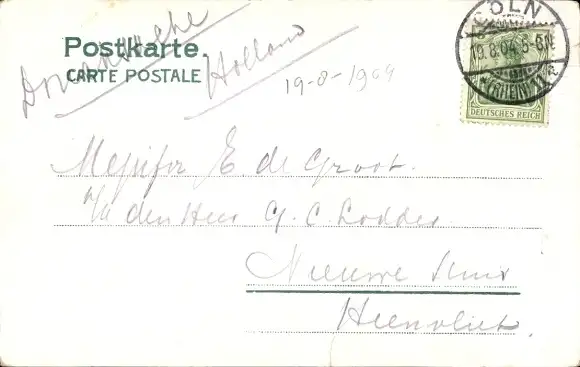 Postkarte.
CARTE POSTALE
Holland
19-8-1904
CÖLN
19.8.04. 5-6N.
(RHEIN)
DEUTSCHES REICH
E de Groot.
a/h den Heer G. C. Lodder.
Nieuwe
Heenvliet.